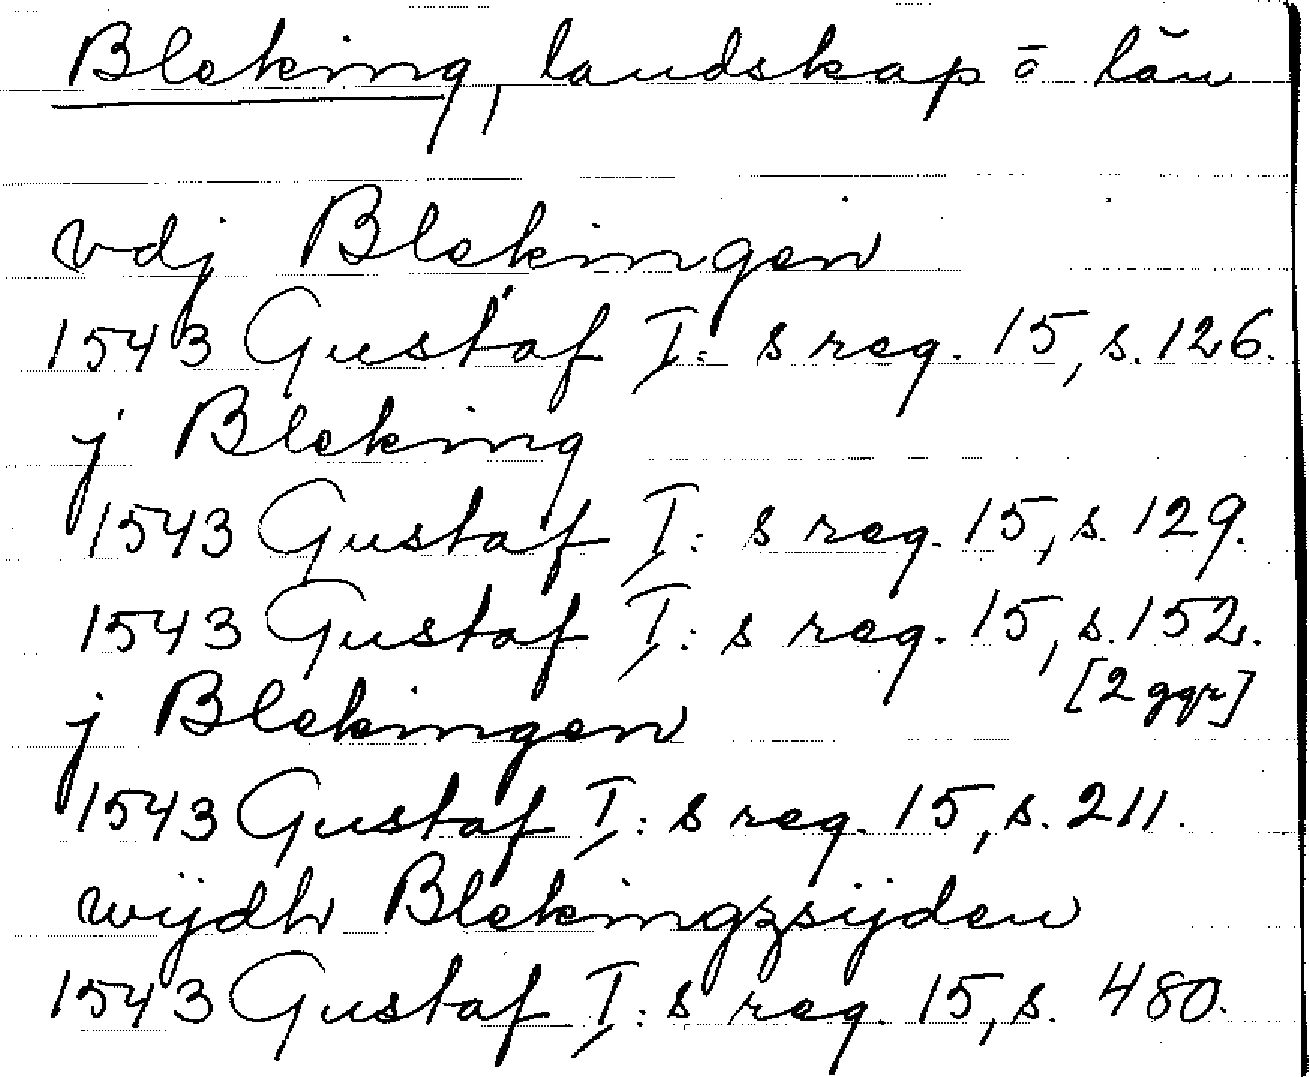 Bleking, landskap o län
vdj Blekingen
1543 Gustaf I:s reg. 15, s. 126.
j Bleking
1543 Gustaf I:s reg. 15, s. 129.
1543 Gustaf I:s reg. 15, s. 152.
[2 ggr]
j Blekingen
1543 Gustaf I:s reg. 15, s. 211.
wijdh Blekingzsijden
1543 Gustaf I:s reg. 15, s. 480.